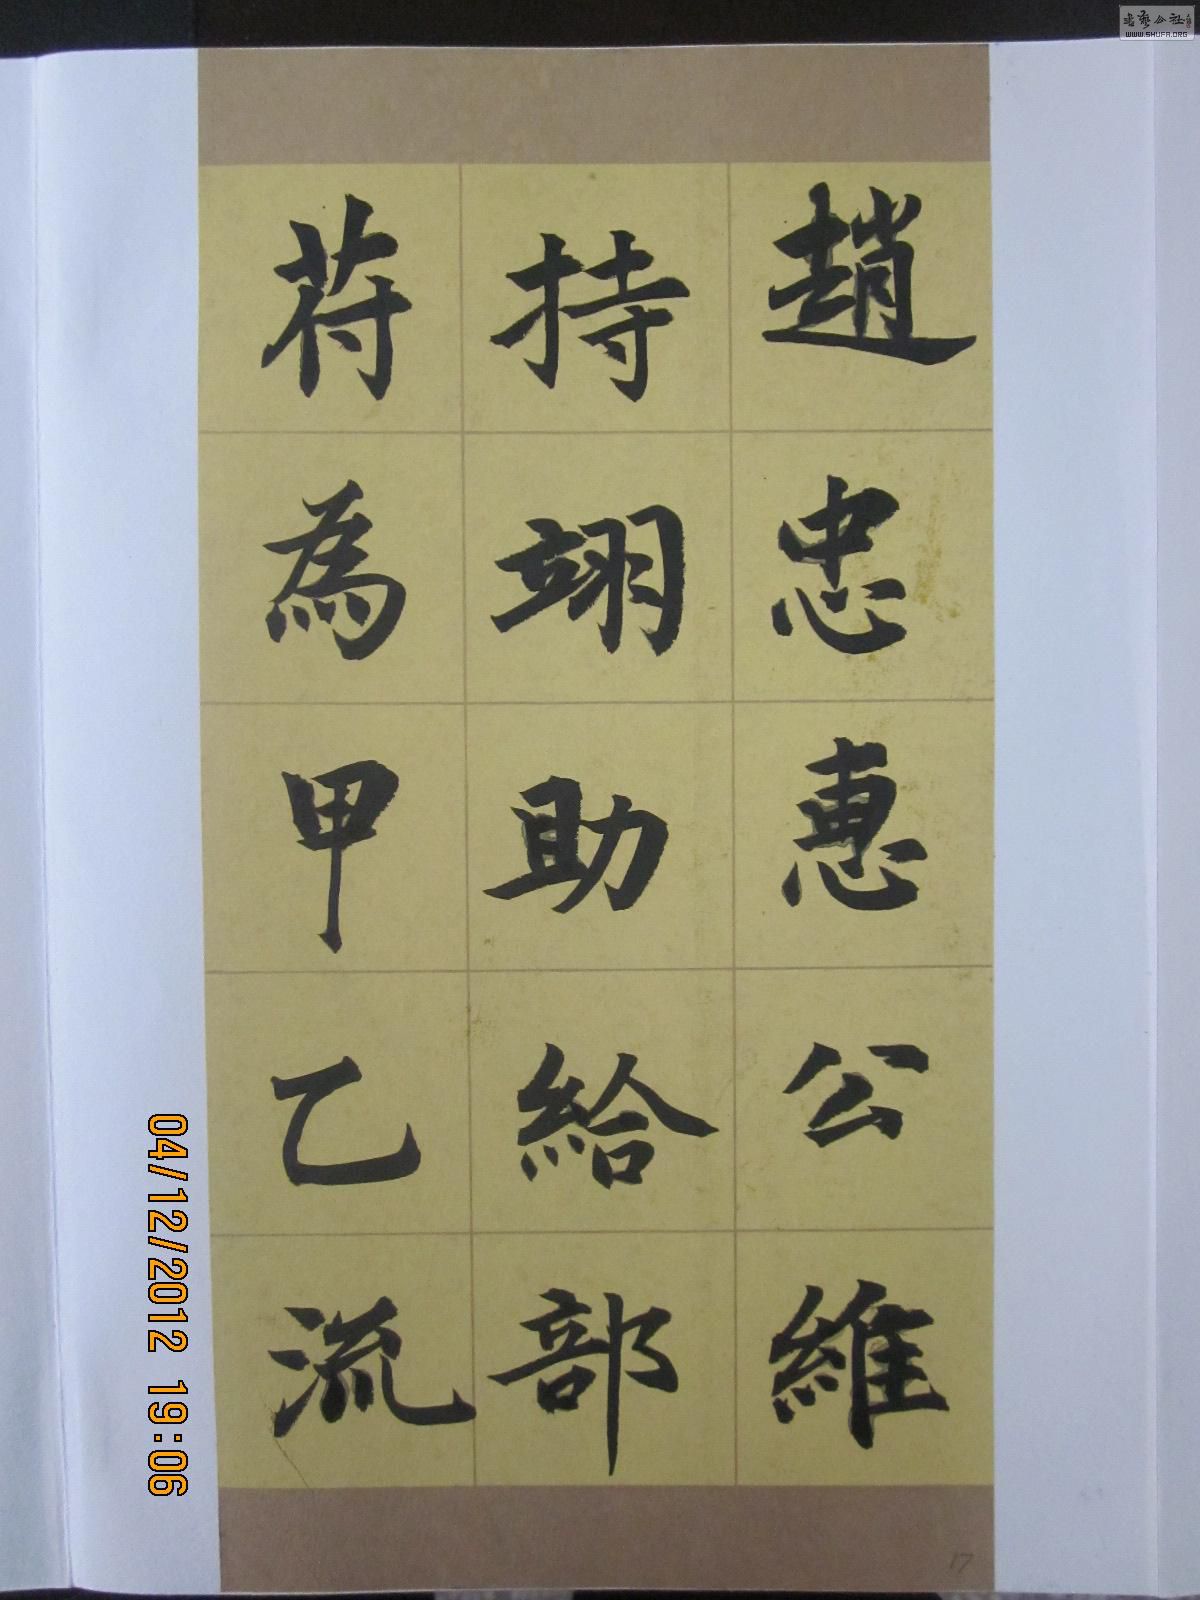 趙忠惠公維
持翊助給部
苻為甲乙流
04/12/2012 19:06
17
書藝公社
WWW.SHUFA.ORG